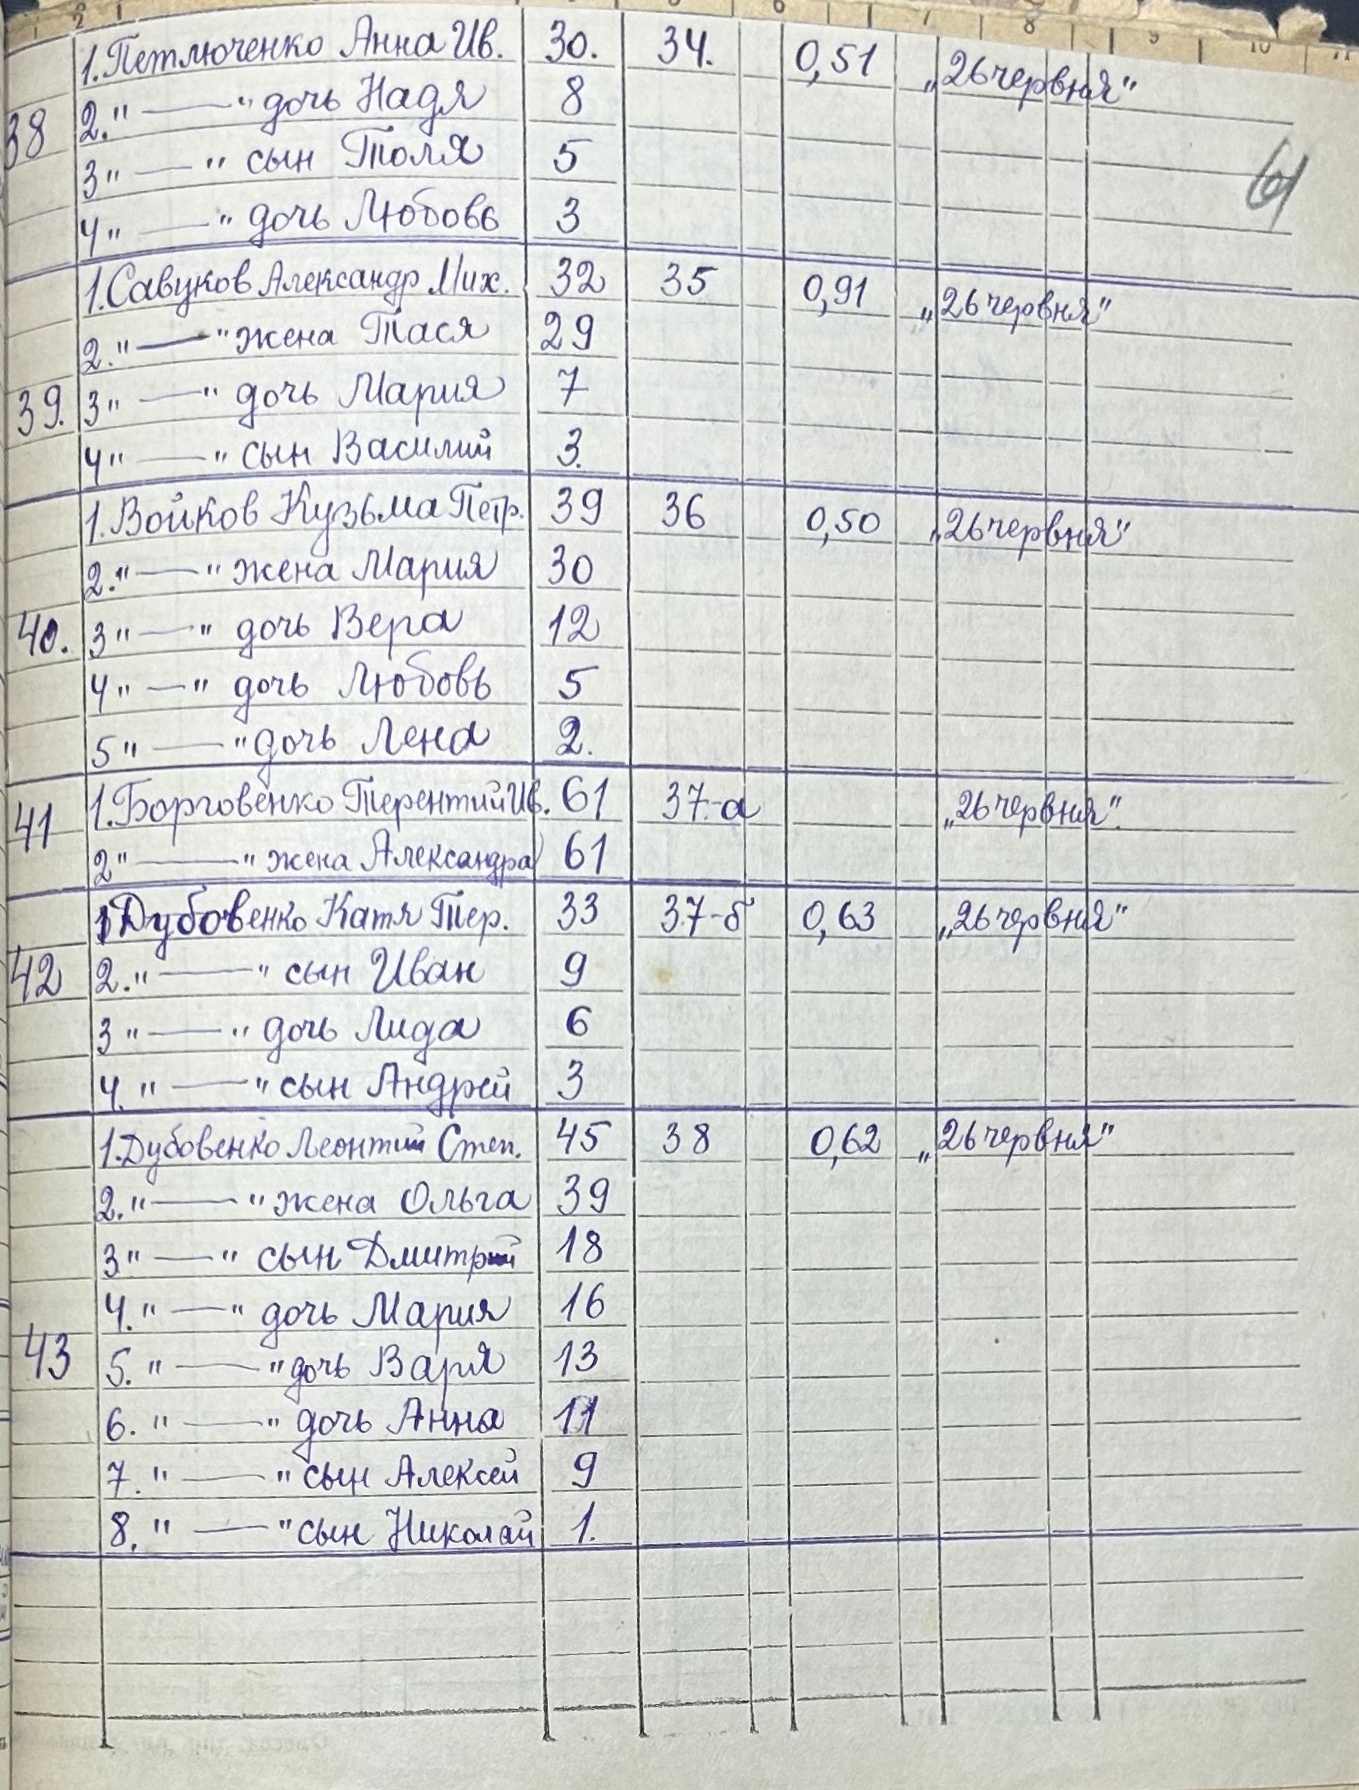 2 6 7 8 9 10 11
1. Петлюченко Анна Ив. 30. 34. 0,51 „26 червня"
38 2. " — " дочь Надя 8
3 " — " сын Толя 5
4 " — " дочь Любовь 3
1. Савуков Александр Мих. 32 35 0,91 „26 червня"
2. " — " жена Тася 29
39. 3 " — " дочь Мария 7
4 " — " сын Василий 3.
1. Войков Кузьма Петр. 39 36 0,50 „26 червня"
2. " — " жена Мария 30
40. 3 " — " дочь Вера 12
4 " — " дочь Любовь 5
5 " — " дочь Лена 2.
41 1. Борговенко Терентий Ив. 61 37-а „26 червня"
2 " — " жена Александра 61
1 Дубовенко Катя Тер. 33 37-б 0,63 „26 червня"
42 2. " — " сын Иван 9
3 " — " дочь Лида 6
4. " — " сын Андрей 3
1. Дубовенко Леонтий Степ. 45 38 0,62 „26 червня"
2. " — " жена Ольга 39
3 " — " сын Дмитрий 18
4. " — " дочь Мария 16
43 5. " — " дочь Варя 13
6. " — " дочь Анна 11
7. " — " сын Алексей 9
8. " — " сын Николай 1.